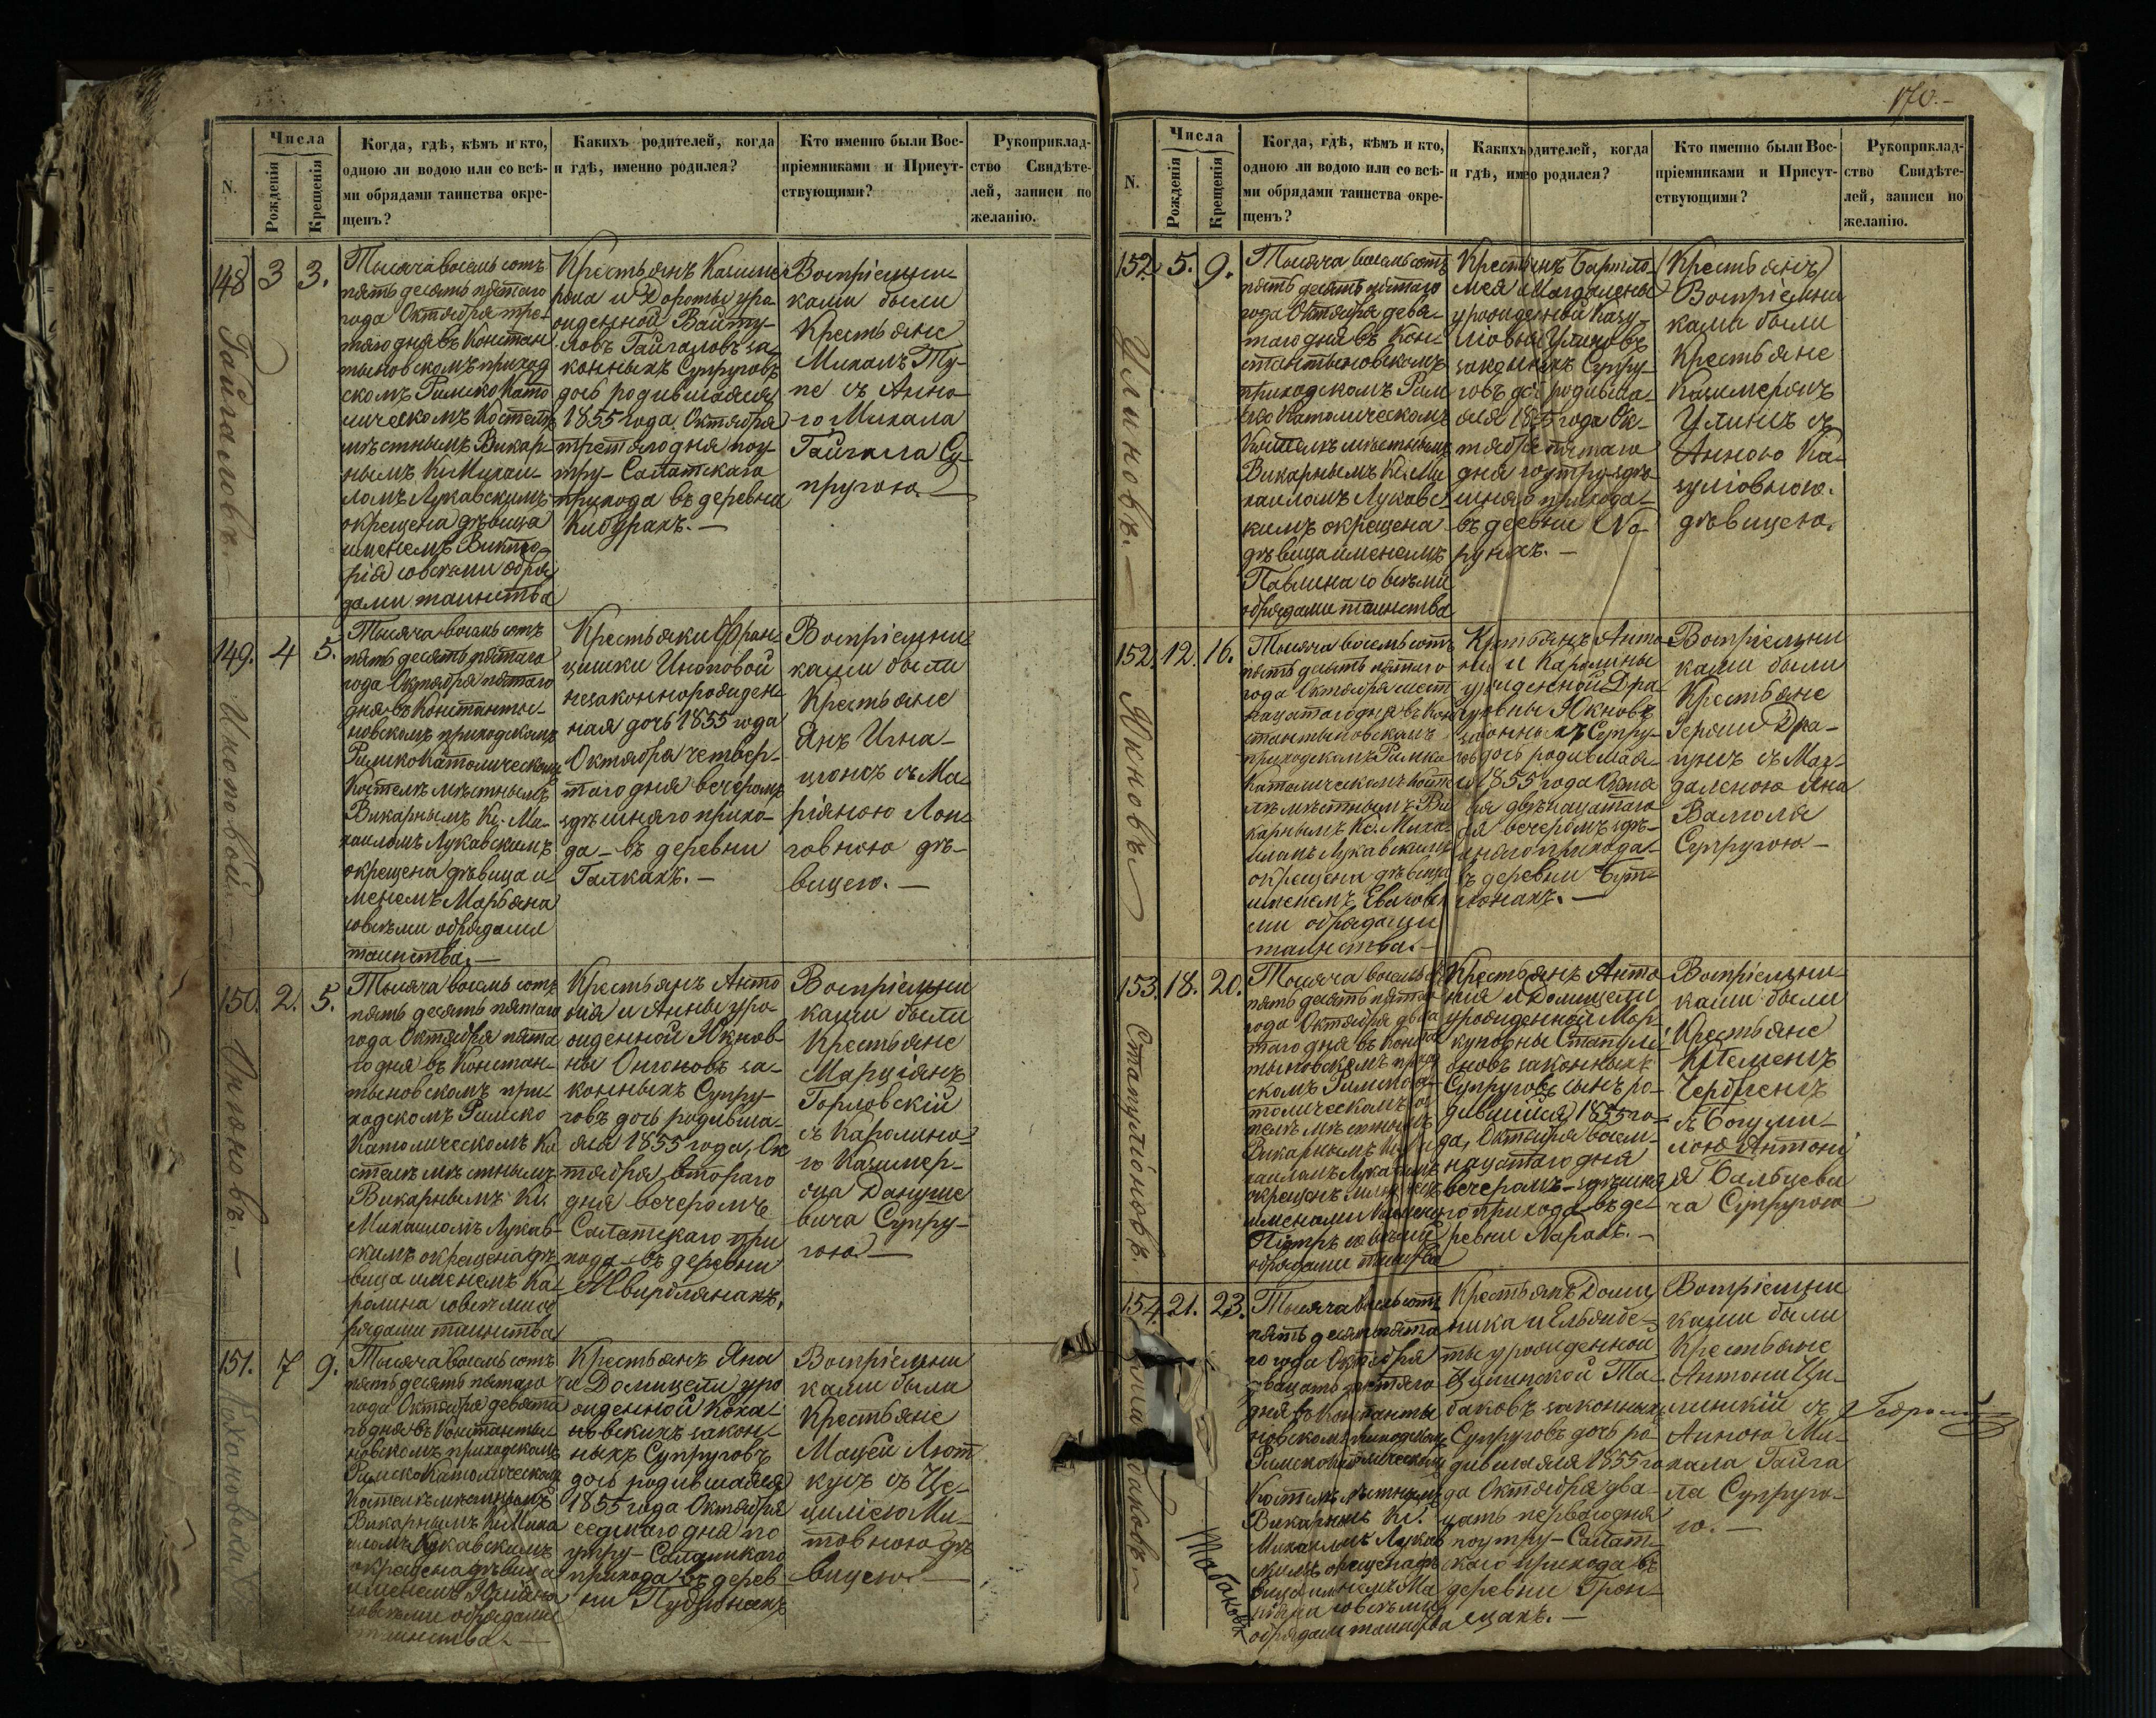 N.
Числа
Рожденія
Крещенія
Когда, гдѣ, кѣмъ и кто,
одною ли водою или со всѣ-
ми обрядами таинства окре-
щенъ?
Какихъ родителей, когда
и гдѣ, именно родился?
Кто именно были Вос-
пріемниками и Присут-
ствующими?
Рукоприклад-
ство Свидѣте-
лей, записи по
желанію.
148
3
3.
Гайгаловъ.
Тысяча восемь сотъ
пять десять пятаго
года Октября тре-
тяго дня въ Констан
тыновскомъ приход
скомъ Римско Като
лическомъ Костелѣ
мѣстнымъ Викар-
нымъ Кс. Михаи-
ломъ Лукавскимъ
окрещена дѣвица
именемъ Викто-
рія со всѣми обря
дами таинства
Крестьянъ Казиме
рока и Дороты уро
жденной Вайту-
ловъ Гайгаловъ за
конныхъ Супруговъ
дочь родившаяся
1855 года Октября
третяго дня поу-
тру - Салатскаго
прихода въ деревни
Кибурахъ. -
Воспріемни
ками были
Крестьяне
Михалъ Ту-
пе съ Анно-
го Михала
Гайгала Су-
пругою. -
149.
4
5.
Тысяча восемь сотъ
пять десять пятаго
года Октября пятаго
дня въ Константы-
новскомъ приходскомъ
Римско Католическомъ
Костелѣ мѣстнымъ
Викарнымъ Кс. Ми-
хаиломъ Лукавскимъ
окрещена дѣвица и-
менемъ Марьяна
со всѣми обрядами
таинства. -
Крестьяки Фран-
цишки
незаконнорожден-
ная дочь 1855 года
Октября четвер-
таго дня вечеромъ
здѣшняго прихо-
да - въ деревни
Галкахъ. -
Воспріемни
ками были
Крестьяне
Янъ Игна-
цюнсъ съ Ма-
ріяною Лон-
говною дѣ-
вицею. -
150.
2.
5.
Тысяча восемь сотъ
пять десять пятаго
года Октября пята
го дня въ Констан-
тыновскомъ при-
ходскомъ Римско
Католическомъ Ко
стелѣ мѣстнымъ
Викарнымъ Кс.
Михаиломъ Лукав-
скимъ окрещена дѣ
вица именемъ Ка-
ролина со всѣми об
рядами таинства
Крестьянъ Анто
нія и Анны уро-
жденной Якнов-
ны за-
конныхъ Супру-
говъ дочь родивша-
яся 1855 года, Ок
тября втораго
дня вечеромъ
Салатскаго при
хода - въ деревни
Мвирблянахъ.
Воспріемни
ками были
Крестьяне
Марціянъ
Горловскій
съ Каролино-
го Казимер-
оца Дануше
вича Супру-
гою -
151.
7
9.
Кохановски
Тысяча восемь сотъ
пять десять пятаго
года Октября девята
го дня въ Константы
новскомъ приходскомъ
Римско Католическомъ
Костелѣ мѣстнымъ
Викарнымъ Кс Миха
иломъ Лукавскимъ
окрещена дѣвица
именемъ
со всѣми обрядами
таинства. -
Крестьянъ Яна
и Домицели уро
жденной Коха-
новскихъ закон-
ныхъ Супруговъ
дочь родившаяся
1855 года Октября
седмаго дня по
утру - Салатскаго
прихода въ дерев-
ни
Воспріемни
ками были
Крестьяне
Мацей Лют
кусъ съ Це-
цилією Ми-
товною дѣ
вицею. -
170. -
N.
Числа
Рожденія
Крещенія
Когда, гдѣ, кѣмъ и кто,
одною ли водою или со всѣ-
ми обрядами таинства окре-
щенъ?
Какихъ родителей, когда
и гдѣ, имено родился?
Кто именно были Вос-
пріемниками и Присут-
ствующими?
Рукоприклад-
ство Свидѣте-
лей, записи по
желанію.
152.
5.
9.
Улиновъ. -
Тысяча восемь сотъ
пять десять пятаго
года Октября девя-
таго дня въ Кон-
стантыновскомъ
приходскомъ Рим
ско Католическомъ
Костелѣ мѣстнымъ
Викарнымъ Кс. Ми
хаиломъ Лукавс-
кимъ окрещена
дѣвица именемъ
Павлина со всѣми
обрядами таинства
Крестьянъ Бартло
мея и Магдалены
урожденной Казу-
ліовны Улиновъ
законныхъ Супру-
говъ дочь родивша-
яся 1855 года Ок-
тября пятаго
дня поутру здѣ-
шняго прихода
въ деревни
Крестьянъ
Воспріемни
ками были
Крестьяне
Казимеронъ
Улинъ съ
Анною Ка-
зуліовною.
дѣвицею.
152.
12.
16.
Якновъ
Тысяча восемь сотъ
пять десять пятаго
года Октября шест
нацатаго дня въ Кон
стантыновскомъ
приходскомъ Римско
Католическомъ Косте
лѣ мѣстнымъ Ви
карнымъ Кс. Миха
иломъ Лукавскимъ
окрещена дѣвица
именемъ Ева со всѣ
ми обрядами
таинства. -
Крестьянъ Анто
нія и Каролины
урожденной Дра-
гуовны Якновъ
законныхъ Супру-
говъ дочь родившая-
ся 1855 года Октя
бря двѣнацатаго
дня вечеромъ здѣ-
шняго прихода
въ деревни
Воспріемни
ками были
Крестьяне
Дра-
гунъ съ Маг-
даленою Яна
Супругою -
153.
18.
20.
Стапуліоновъ.
Тысяча восемь сотъ
пять десять пятаго
года Октября двадца
таго дня въ Констан
тыновскомъ приход
скомъ Римско Ка-
толическомъ Кос
телѣ мѣстнымъ
Викарнымъ Кс. Ми
хаиломъ Лукавскимъ
окрещенъ младенецъ
именами
Піотръ со всѣми
обрядами таинства
Крестьянъ Анто
нія и Домицели
урожденной Мор-
куновны Стапулі-
оновъ законныхъ
Супруговъ сынъ ро-
дившійся 1855 го-
да, Октября восем-
нацатаго дня
вечеромъ - здѣшня
го прихода въ де-
ревни Нарахъ. -
Воспріемни-
ками были
Крестьяне
Клеменъ
съ Богуми-
лою Антоні
я Бальцеви
ча Супругою
154.
21.
23.
Табаковъ
Тысяча восемь сотъ
пять десять пята
го года Октября
двацать третяго
дня въ Константы
новскомъ приходскомъ
Римско Католическомъ
Костелѣ мѣстнымъ
Викарнымъ Кс.
Михаиломъ Лукав
скимъ окрещена дѣ
вица именемъ Ма
ріяна со всѣми
обрядами таинства
Крестьянъ Доми
ника и Ельжбе-
ты урожденной
Цилинской Та-
баковъ законныхъ
Супруговъ дочь ро-
дившаяся 1855 го
да Октября два-
цать перваго дня
поутру - Салат-
скаго прихода въ
деревни Грон-
ецахъ. -
Воспріемни
ками были
Крестьяне
Антони Ци-
линскій съ
Анною Ми-
хала Гайга
ла Супруго-
ю. -